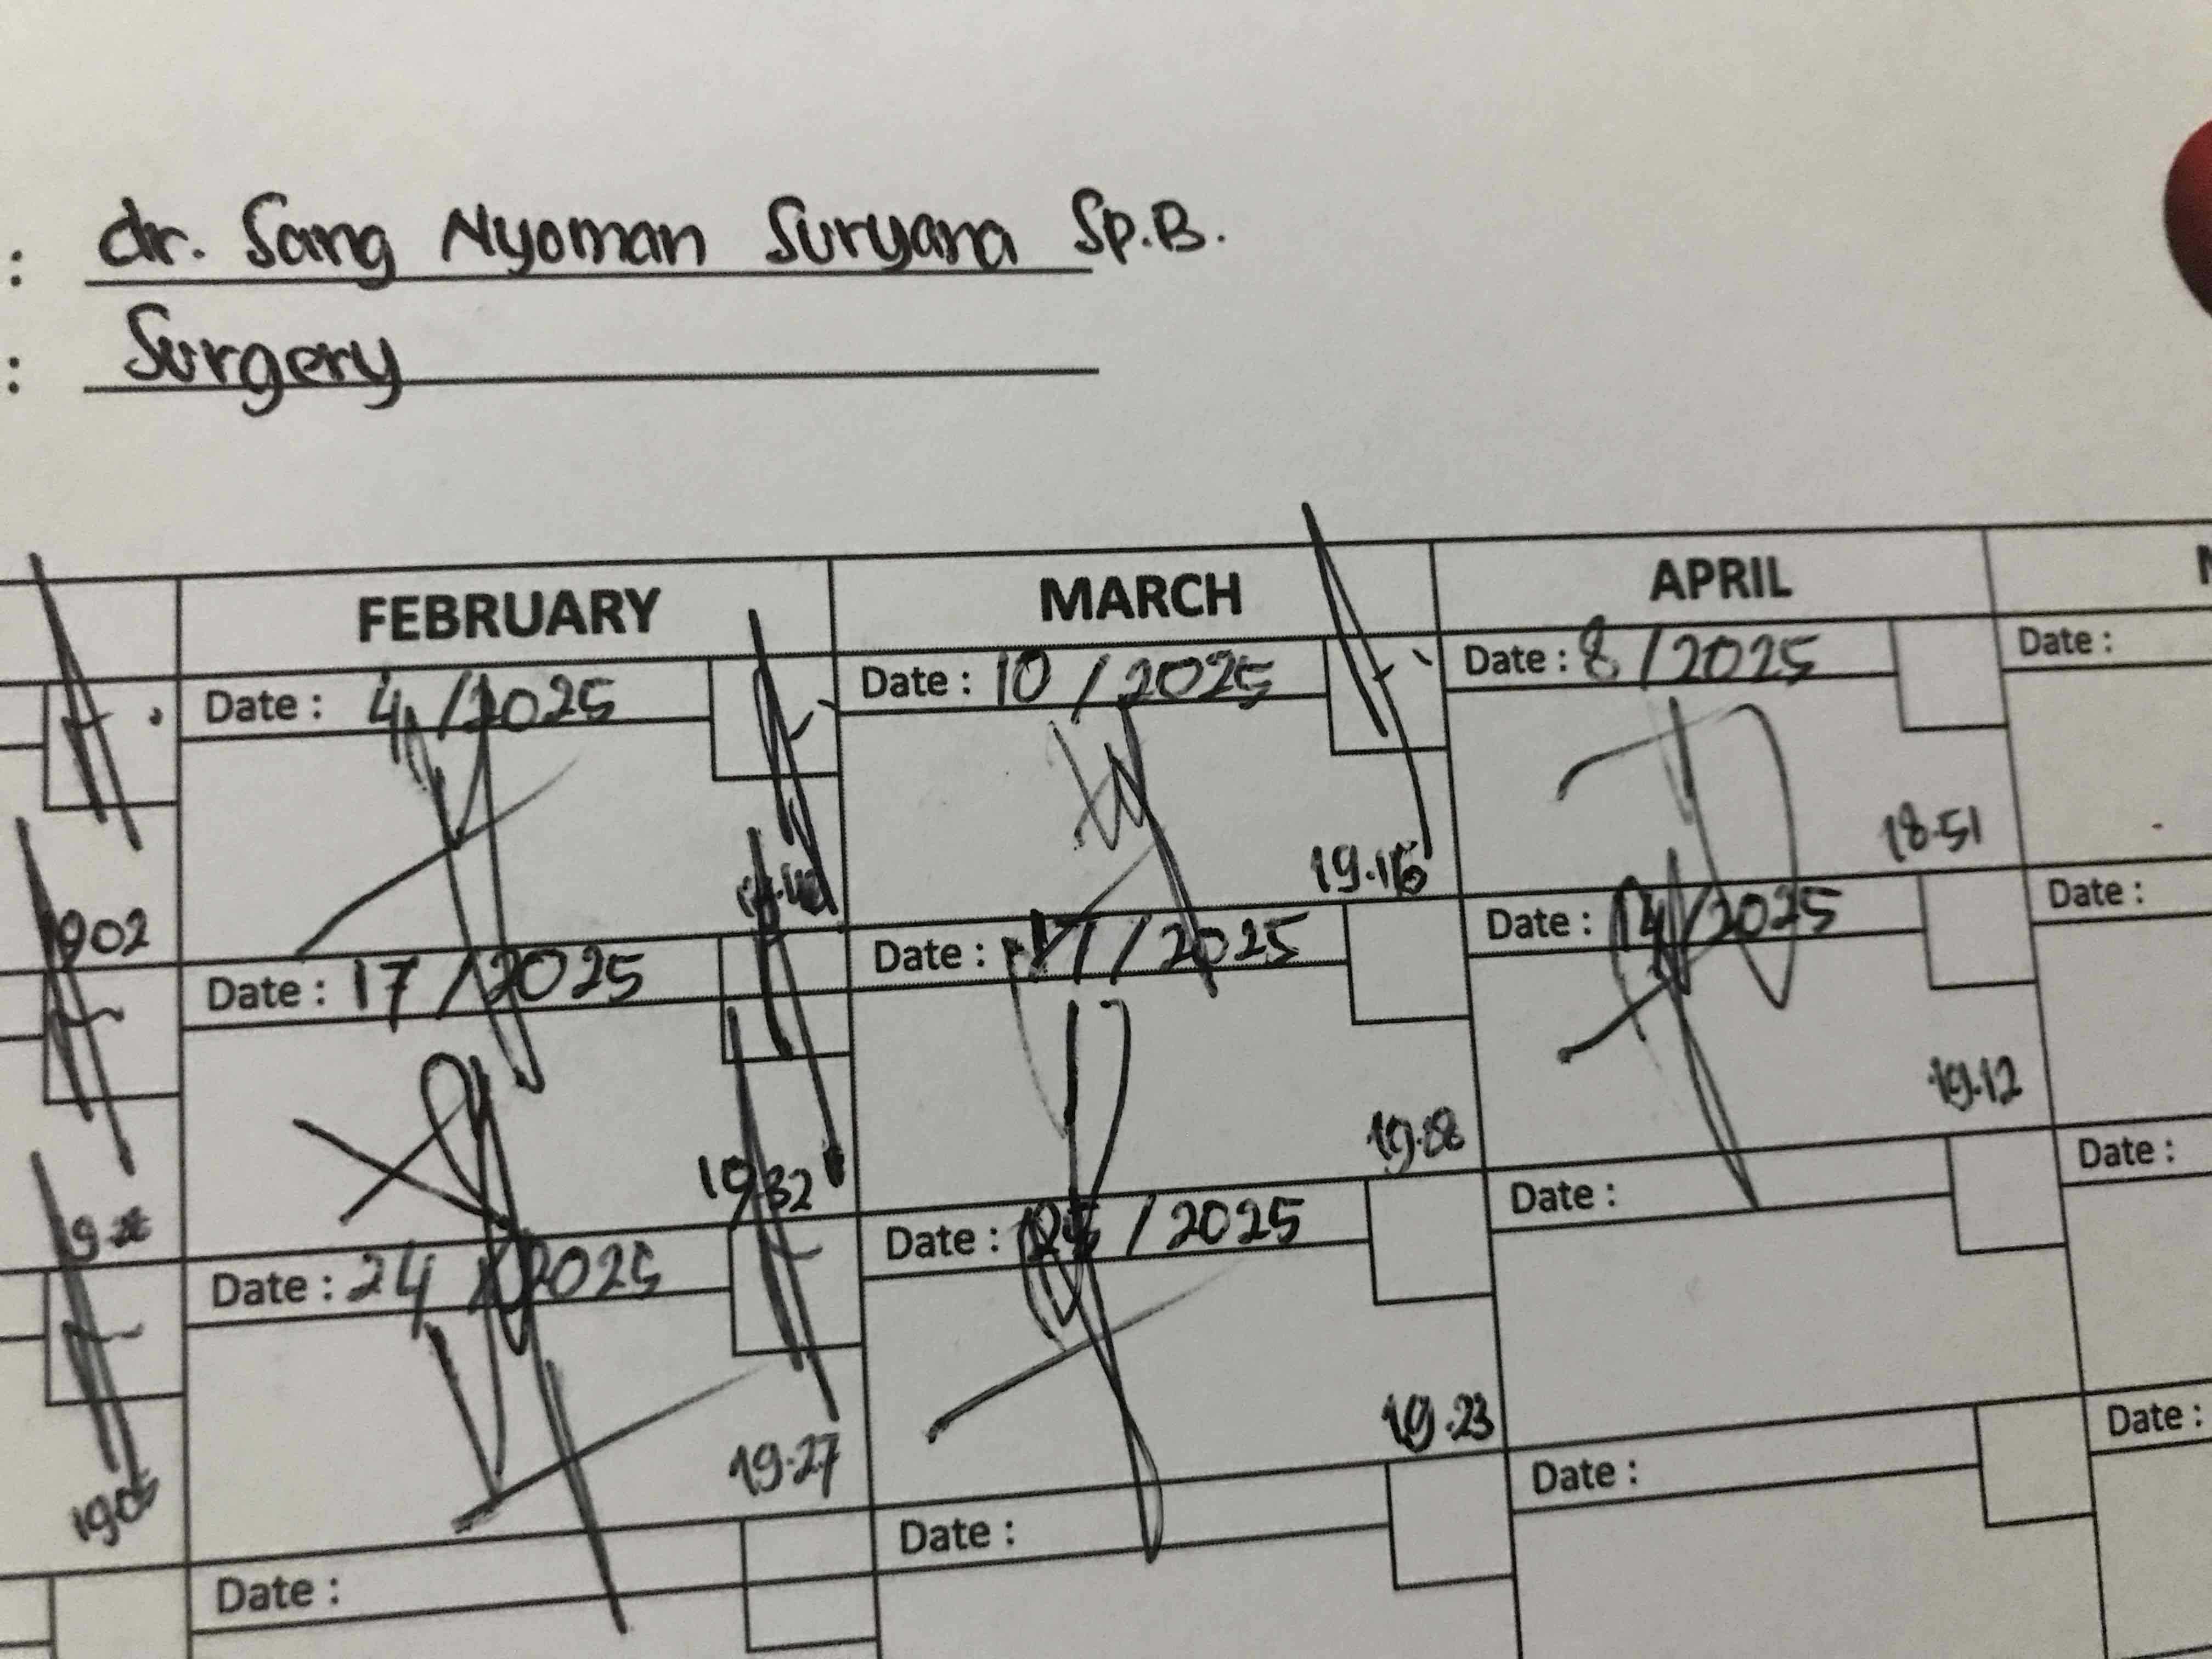 : dr. Sang Nyoman Suryana Sp.B.
: Surgery
FEBRUARY MARCH APRIL
Date : 4 / 2025 Date : 10 / 2025 Date : 8 / 2025 Date :
1902 19.16 18.51
Date : 17 / 2025 Date : 17 / 2025 Date : 14 / 2025 Date :
19.32 19.12
Date : 24 / 2025 Date : / 2025 Date : Date :
19.27 19.23
Date : Date : Date : Date :